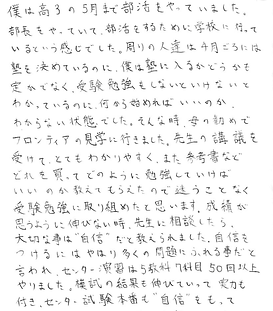 僕は高3の5月まで部活をやっていました。
部長をやっていて、部活をするために学校に行って
いるという感じでした。周りの人達は4月ごろには
塾を決めているのに、僕は塾に入るかどうかも
定かでなく、受験勉強もしないといけないと
わかっているのに、何から始めればいいのか、
わからない状態でした。そんな時、母の勧めで
フロンティアの見学に行きました。先生の講議を
受けて、とてもわかりやすく、また参考書など
どれを買ってどのように勉強していけば
いいのか教えてもらえたので迷うことなく
受験勉強に取り組めたと思います。成績が
思うように伸びない時、先生に相談したら、
大切な事は"自信"だと教えられました。自信を
つけるにはやはり多くの問題にふれる事だと
言われ、センター演習は5教科7科目50回以上
やりました。模試の結果も伸びていって実力も
付き、センター試験本番も"自信"をもって